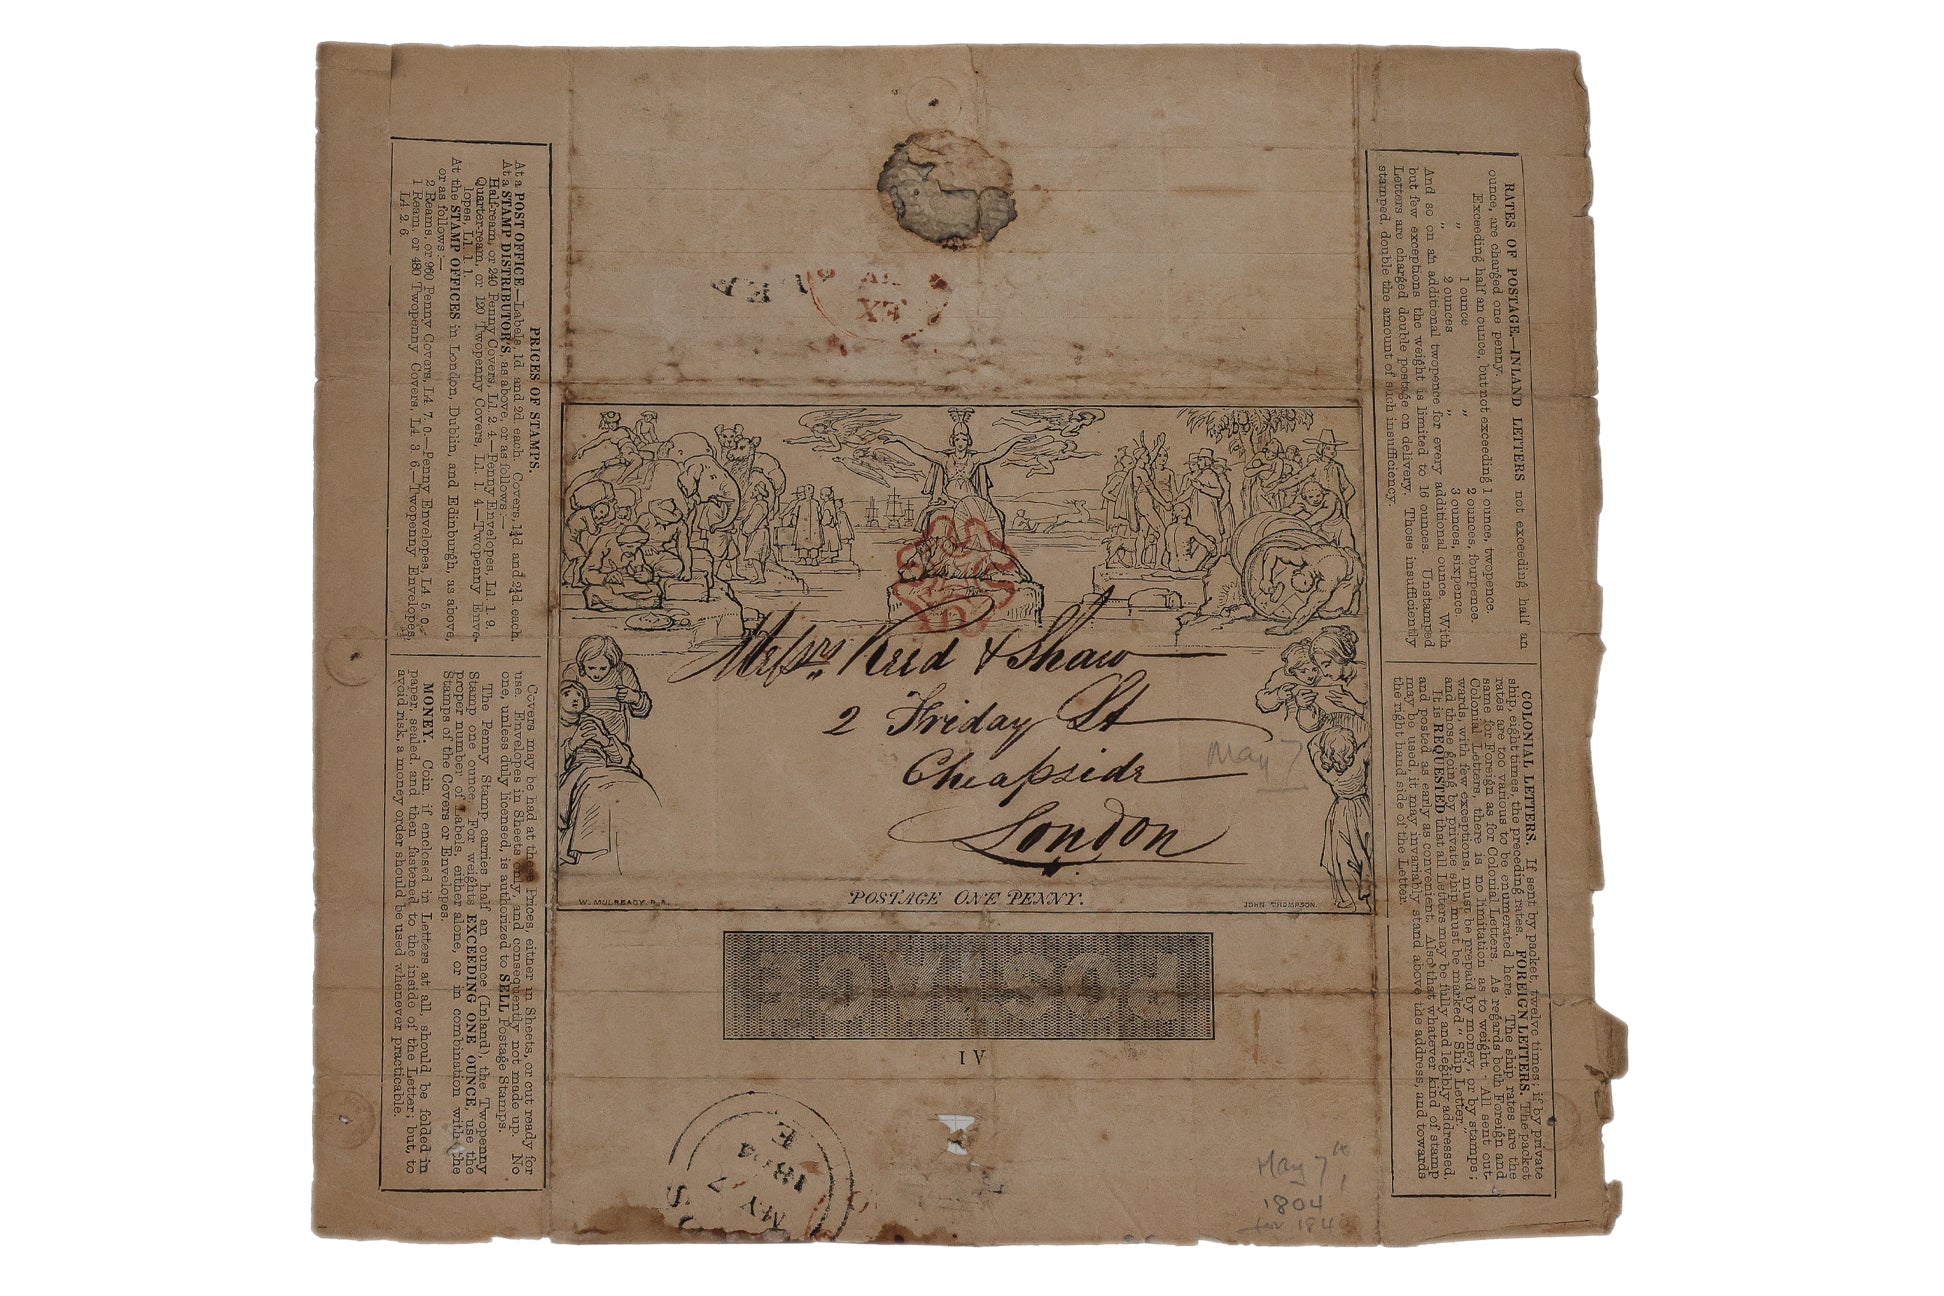 PRICES OF STAMPS.
At a POST OFFICE.—Labels, 1d. and 2d. each. Covers, 1¼d. and 2¼d. each.
At a STAMP DISTRIBUTOR'S, as above, or as follows:—
Half-ream, or 240 Penny Covers, L1. 2. 4.—Penny Envelopes, L1. 1. 9.
Quarter-ream, or 120 Twopenny Covers, L1. 1. 4.—Twopenny Enve-
lopes, L1. 1. 1.
At the STAMP OFFICES in London, Dublin, and Edinburgh, as above,
or as follows:—
2 Reams, or 960 Penny Covers, L4. 7. 0.—Penny Envelopes, L4. 5. 0.
1 Ream, or 480 Twopenny Covers, L4. 3. 6.—Twopenny Envelopes,
L4. 2. 6.
Covers may be had at these Prices, either in Sheets, or cut ready for
use. Envelopes in Sheets only, and consequently not made up. No
one, unless duly licensed, is authorized to SELL Postage Stamps.
The Penny Stamp carries half an ounce (Inland), the Twopenny
Stamp one ounce. For weights EXCEEDING ONE OUNCE, use the
proper number of Labels, either alone, or in combination with the
Stamps of the Covers or Envelopes.
MONEY. Coin, if enclosed in Letters at all, should be folded in
paper, sealed, and then fastened to the inside of the Letter; but, to
avoid risk, a money order should be used whenever practicable.
EX
Messrs Reid & Shaw
2 Friday St
Cheapside
London
May 7
POSTAGE ONE PENNY.
W. MULREADY, R.A.
JOHN THOMPSON.
POSTAGE
IV
E
1804
MY 7
May 7th,
1804
for 184
RATES OF POSTAGE.—INLAND LETTERS not exceeding half an
ounce, are charged one penny.
Exceeding half an ounce, but not exceeding 1 ounce, twopence.
" 1 ounce " 2 ounces, fourpence.
" 2 ounces " 3 ounces, sixpence.
And so on an additional twopence for every additional ounce. With
but few exceptions the weight is limited to 16 ounces. Unstamped
Letters are charged double postage on delivery. Those insufficiently
stamped, double the amount of such insufficiency.
COLONIAL LETTERS. If sent by packet, twelve times; if by private
ship, eight times, the preceding rates. FOREIGN LETTERS. The packet
rates are too various to be enumerated here. The ship rates are the
same for Foreign as for Colonial Letters. As regards both Foreign and
Colonial Letters, there is no limitation as to weight. All sent out-
wards, with few exceptions, must be prepaid by money, or by stamps;
and those going by private ship must be marked "Ship Letter."
It is REQUESTED that all Letters may be fully and legibly addressed,
and posted as early as convenient. Also that whatever kind of stamp
may be used, it may invariably stand above the address, and towards
the right hand side of the Letter.